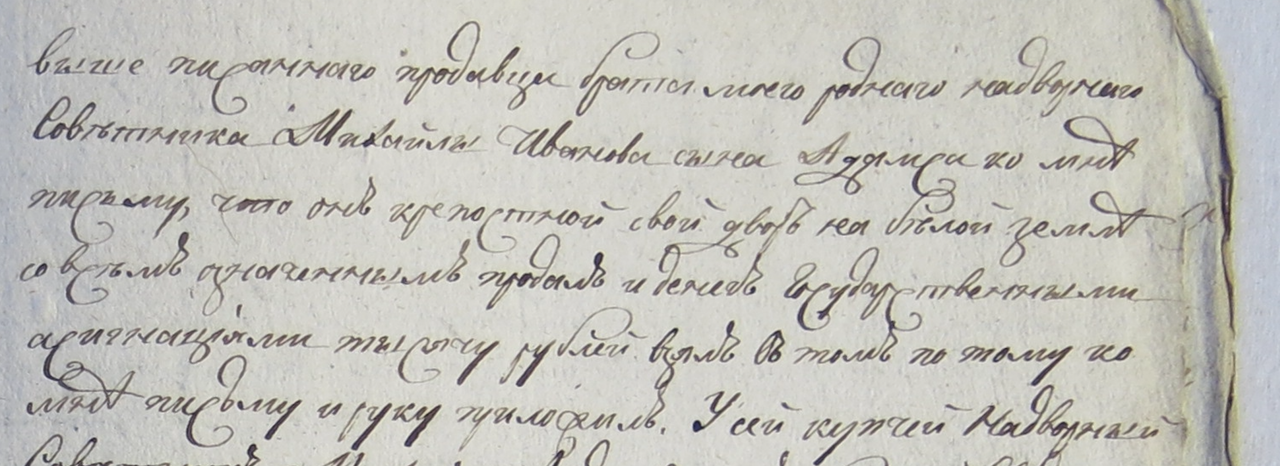 выше писаннаго продавца брата моего роднаго надворнаго
Советника Михайлы Иванова сына Адамса ко мнѣ
письму, что онъ крепостной свой дворъ на белой землѣ
со всемъ означеннымъ продалъ и денегъ Государственными
асигнацiями тысячу рублей взялъ Въ томъ по тому ко
мнѣ письму и руку приложилъ. У сей купчей Надворный